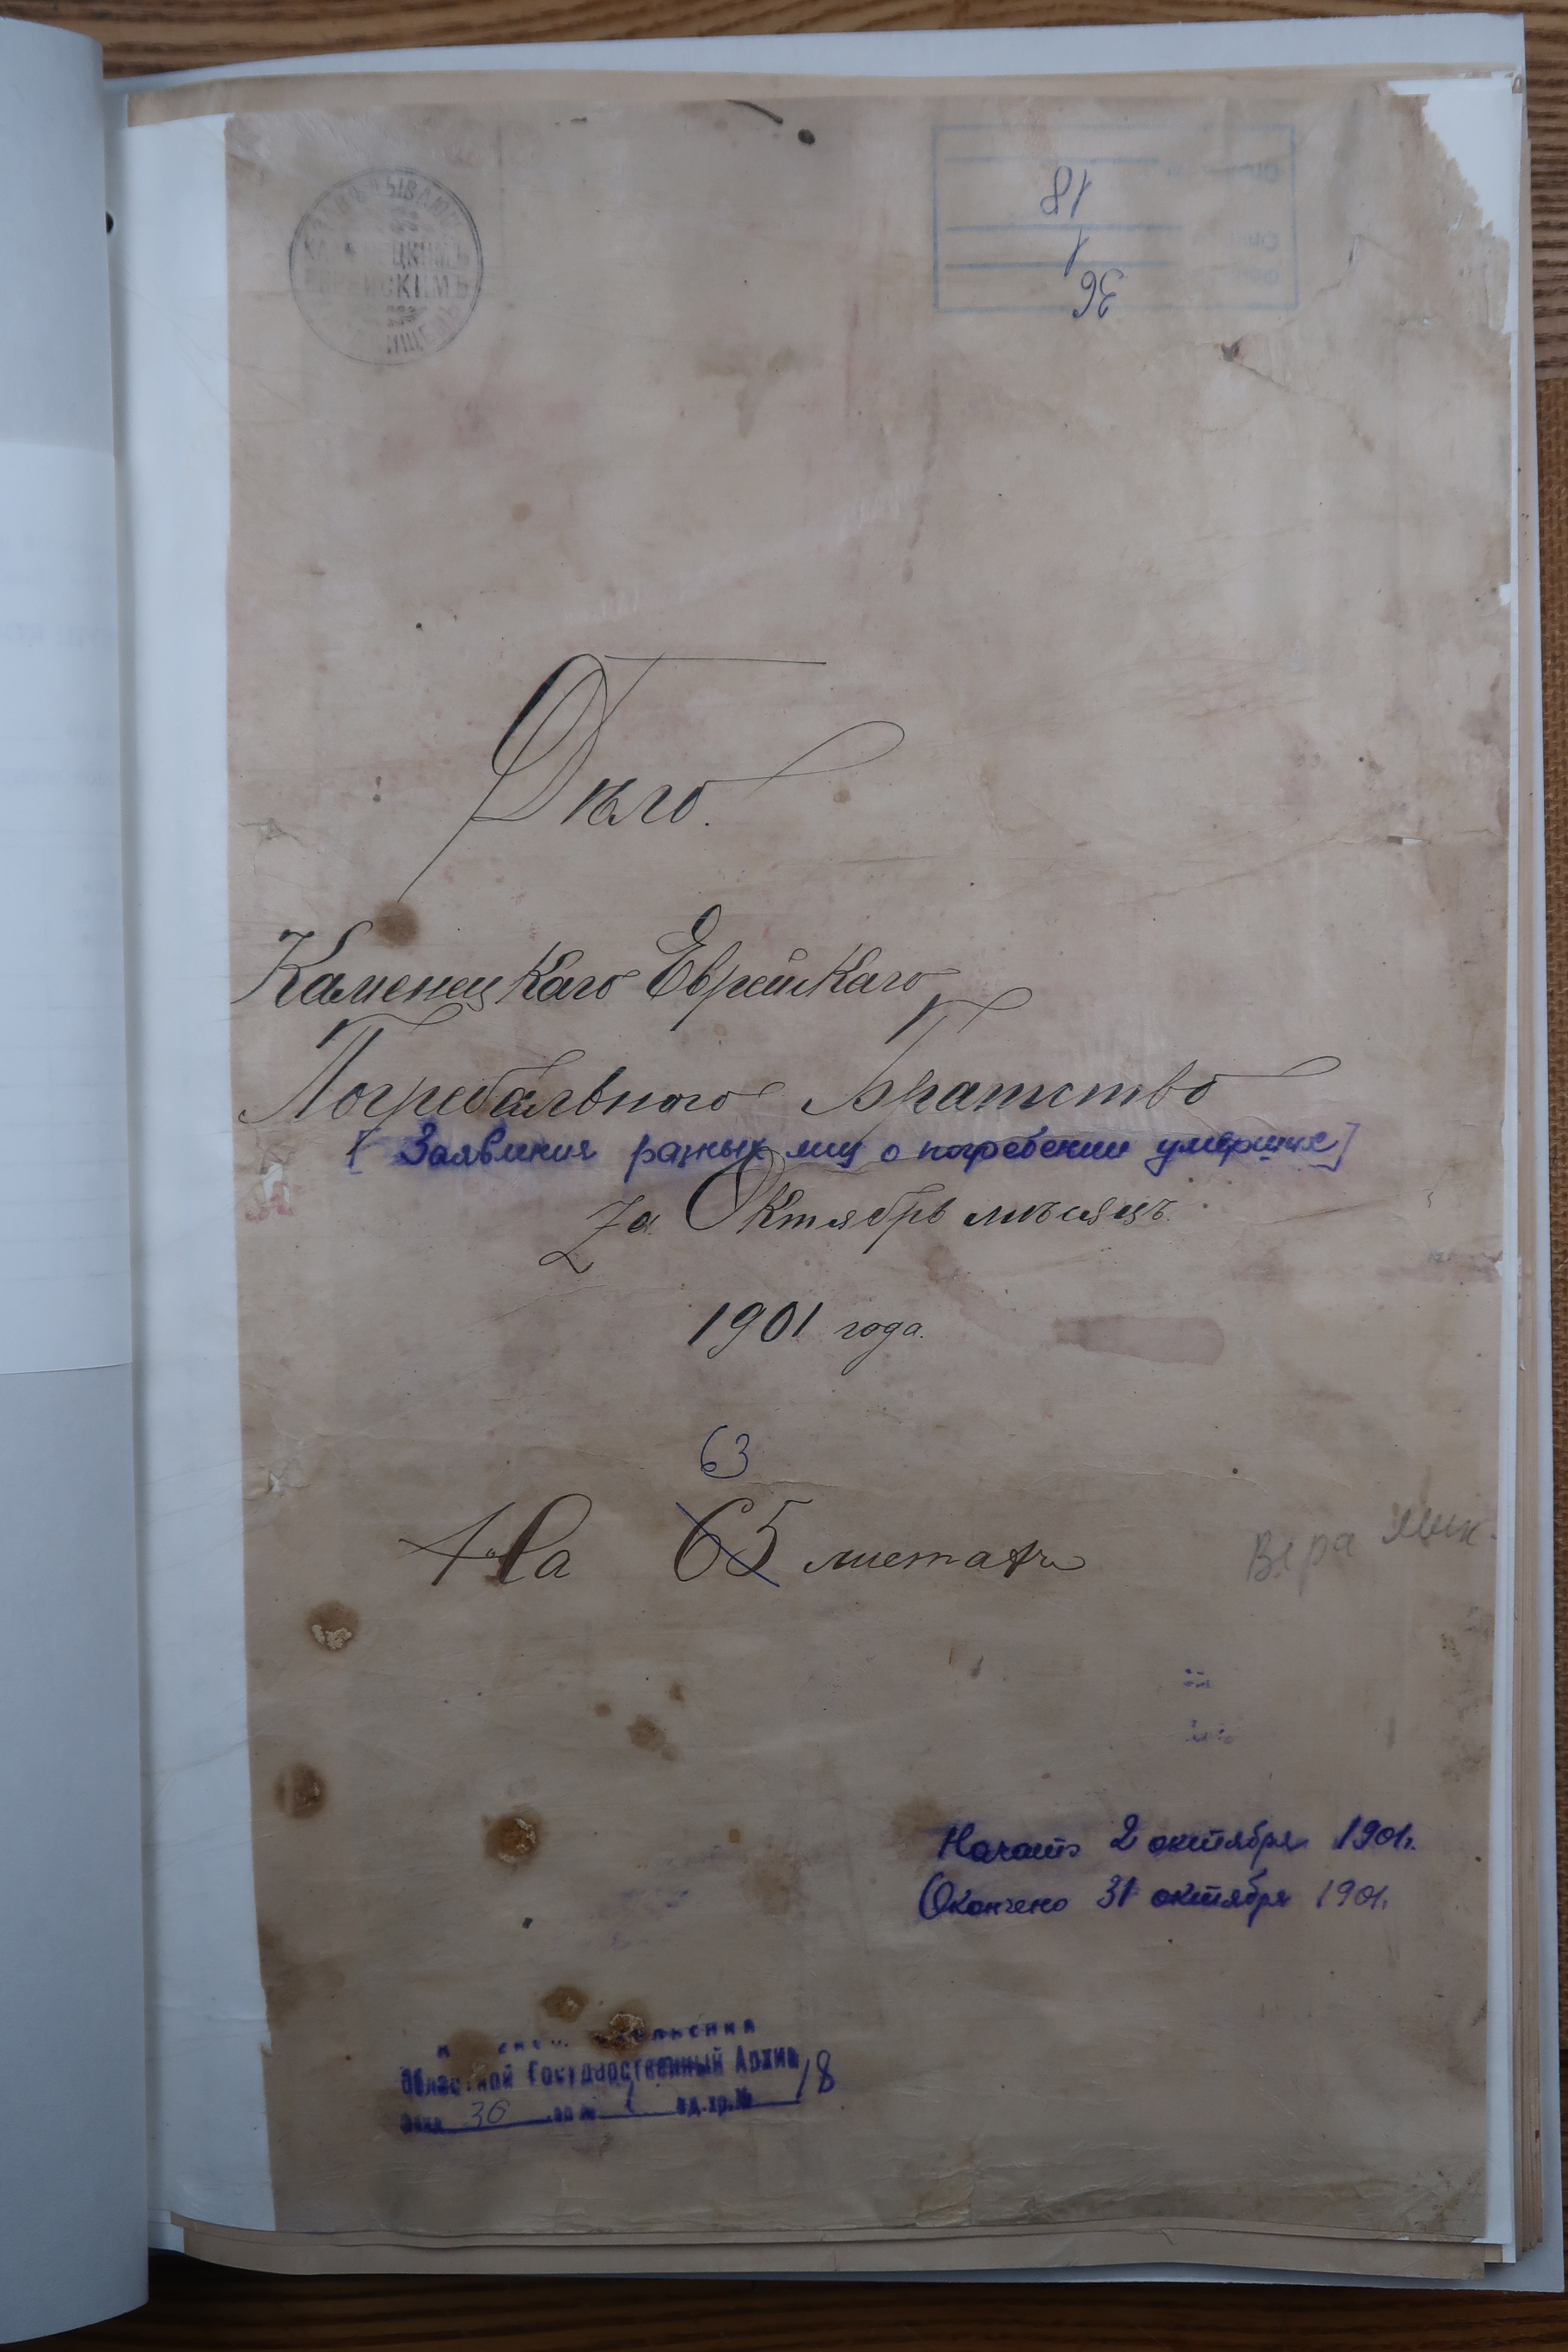 18
1
36
Дѣло.
Каменецкаго Еврейскаго
Погребальнаго Братство
[Заявления разных лиц о погребении умерших]
за Октябрь мѣсяцъ.
1901 года.
63
На 65 листахъ
Вера
Начато 2 октября 1901г.
Окончено 31 октября 1901г.
Областной Государственный Архив
Фонд 36 оп № 1 ед.хр.№ 18